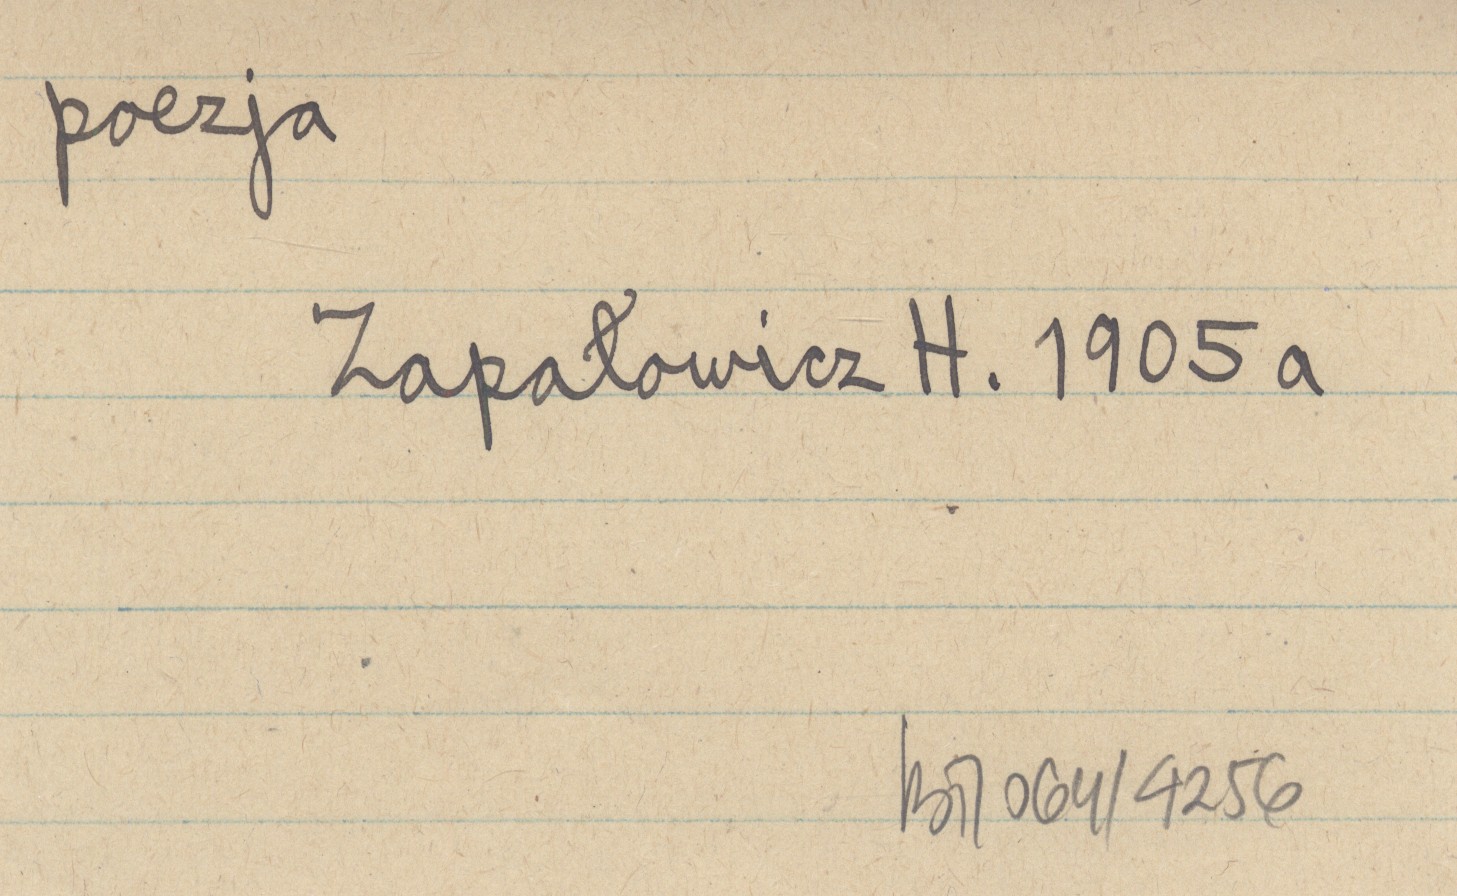 poezja
Zapałowicz H. 1905 a
064/4256